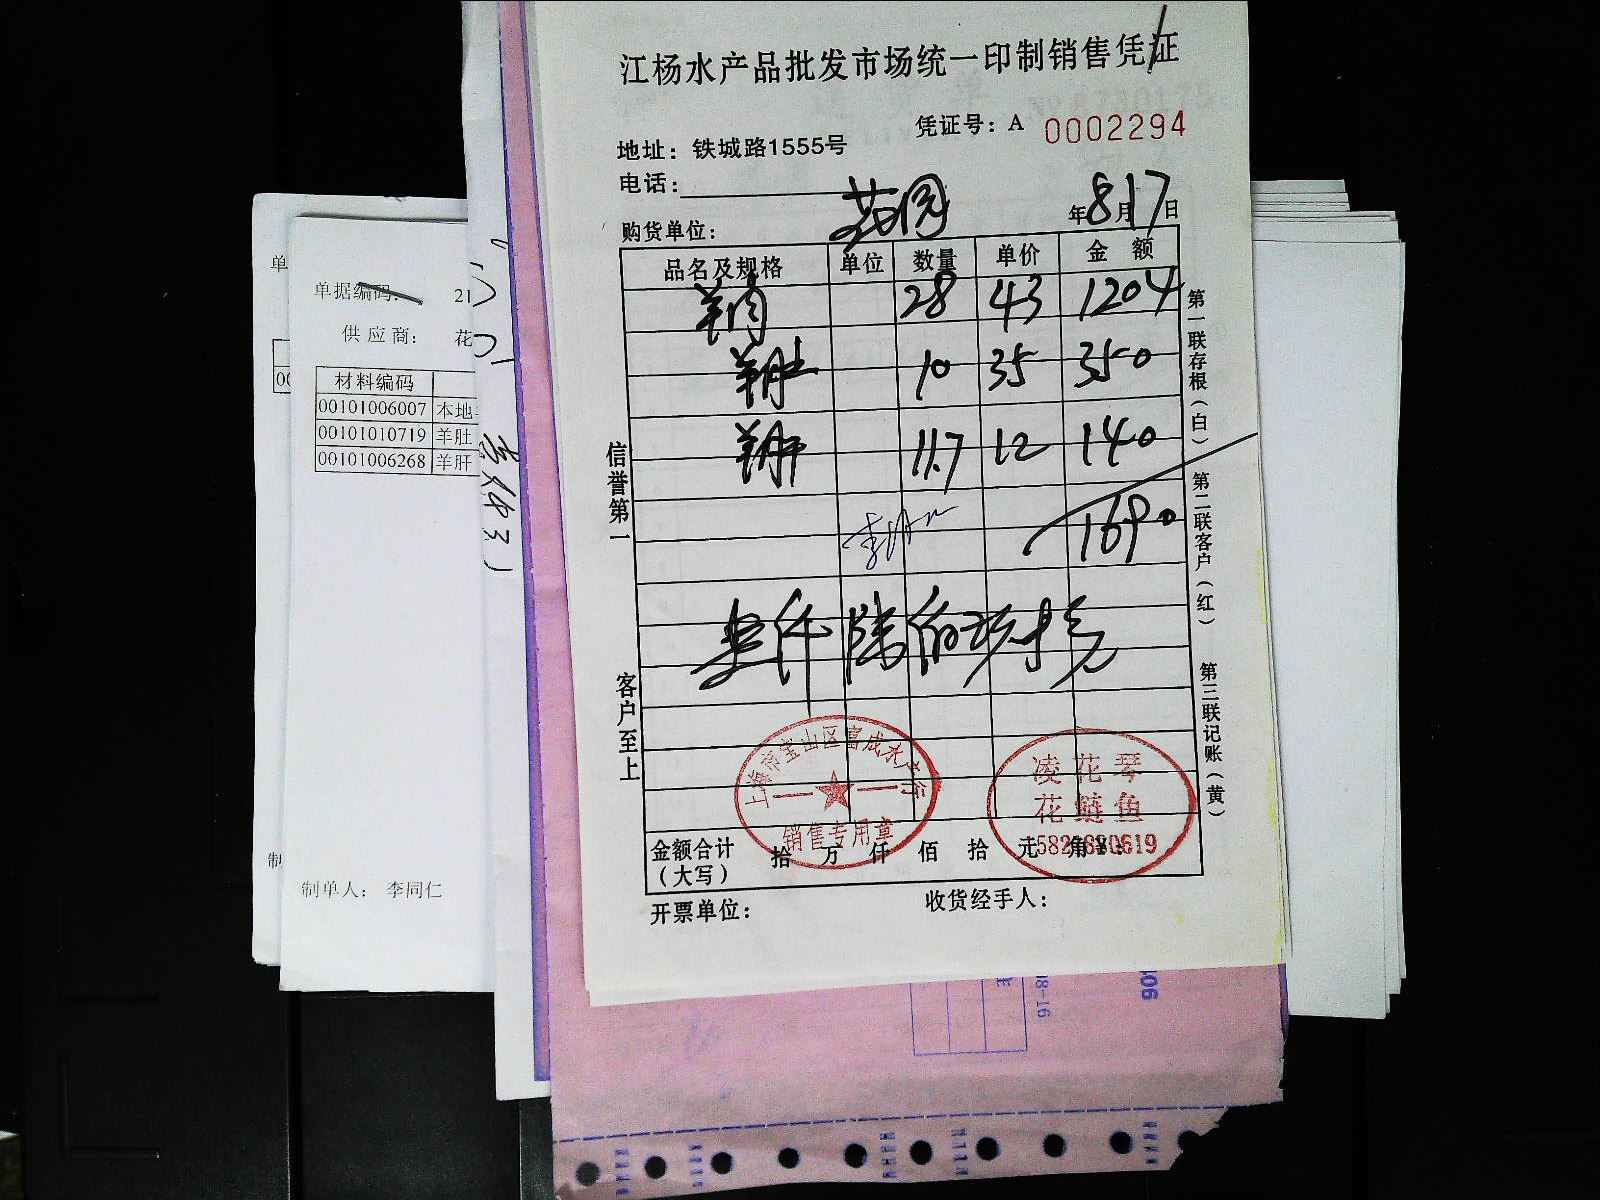 江杨水产品批发市场统一印制销售凭证
凭证号：A 0002294
地址：铁城路1555号
电话：
购货单位： 年 8 月 17 日
品名及规格 单位 数量 单价 金额
羊肉 28 43 1204
羊肚 10 35 350
羊肝 11.7 12 140
1690
壹仟陆佰玖拾元
信誉第一
客户至上
第一联存根（白）
第二联客户（红）
第三联记账（黄）
上海市宝山区富成水产行
销售专用章
凌花琴
花鲢鱼
金额合计（大写） 拾 万 仟 佰 拾 元 角
开票单位：
收货经手人：
单据编码： 21
供应商： 花
材料编码
00101006007 本地
00101010719 羊肚
00101006268 羊肝
制单人： 李同仁
单
00
制
08-16
406